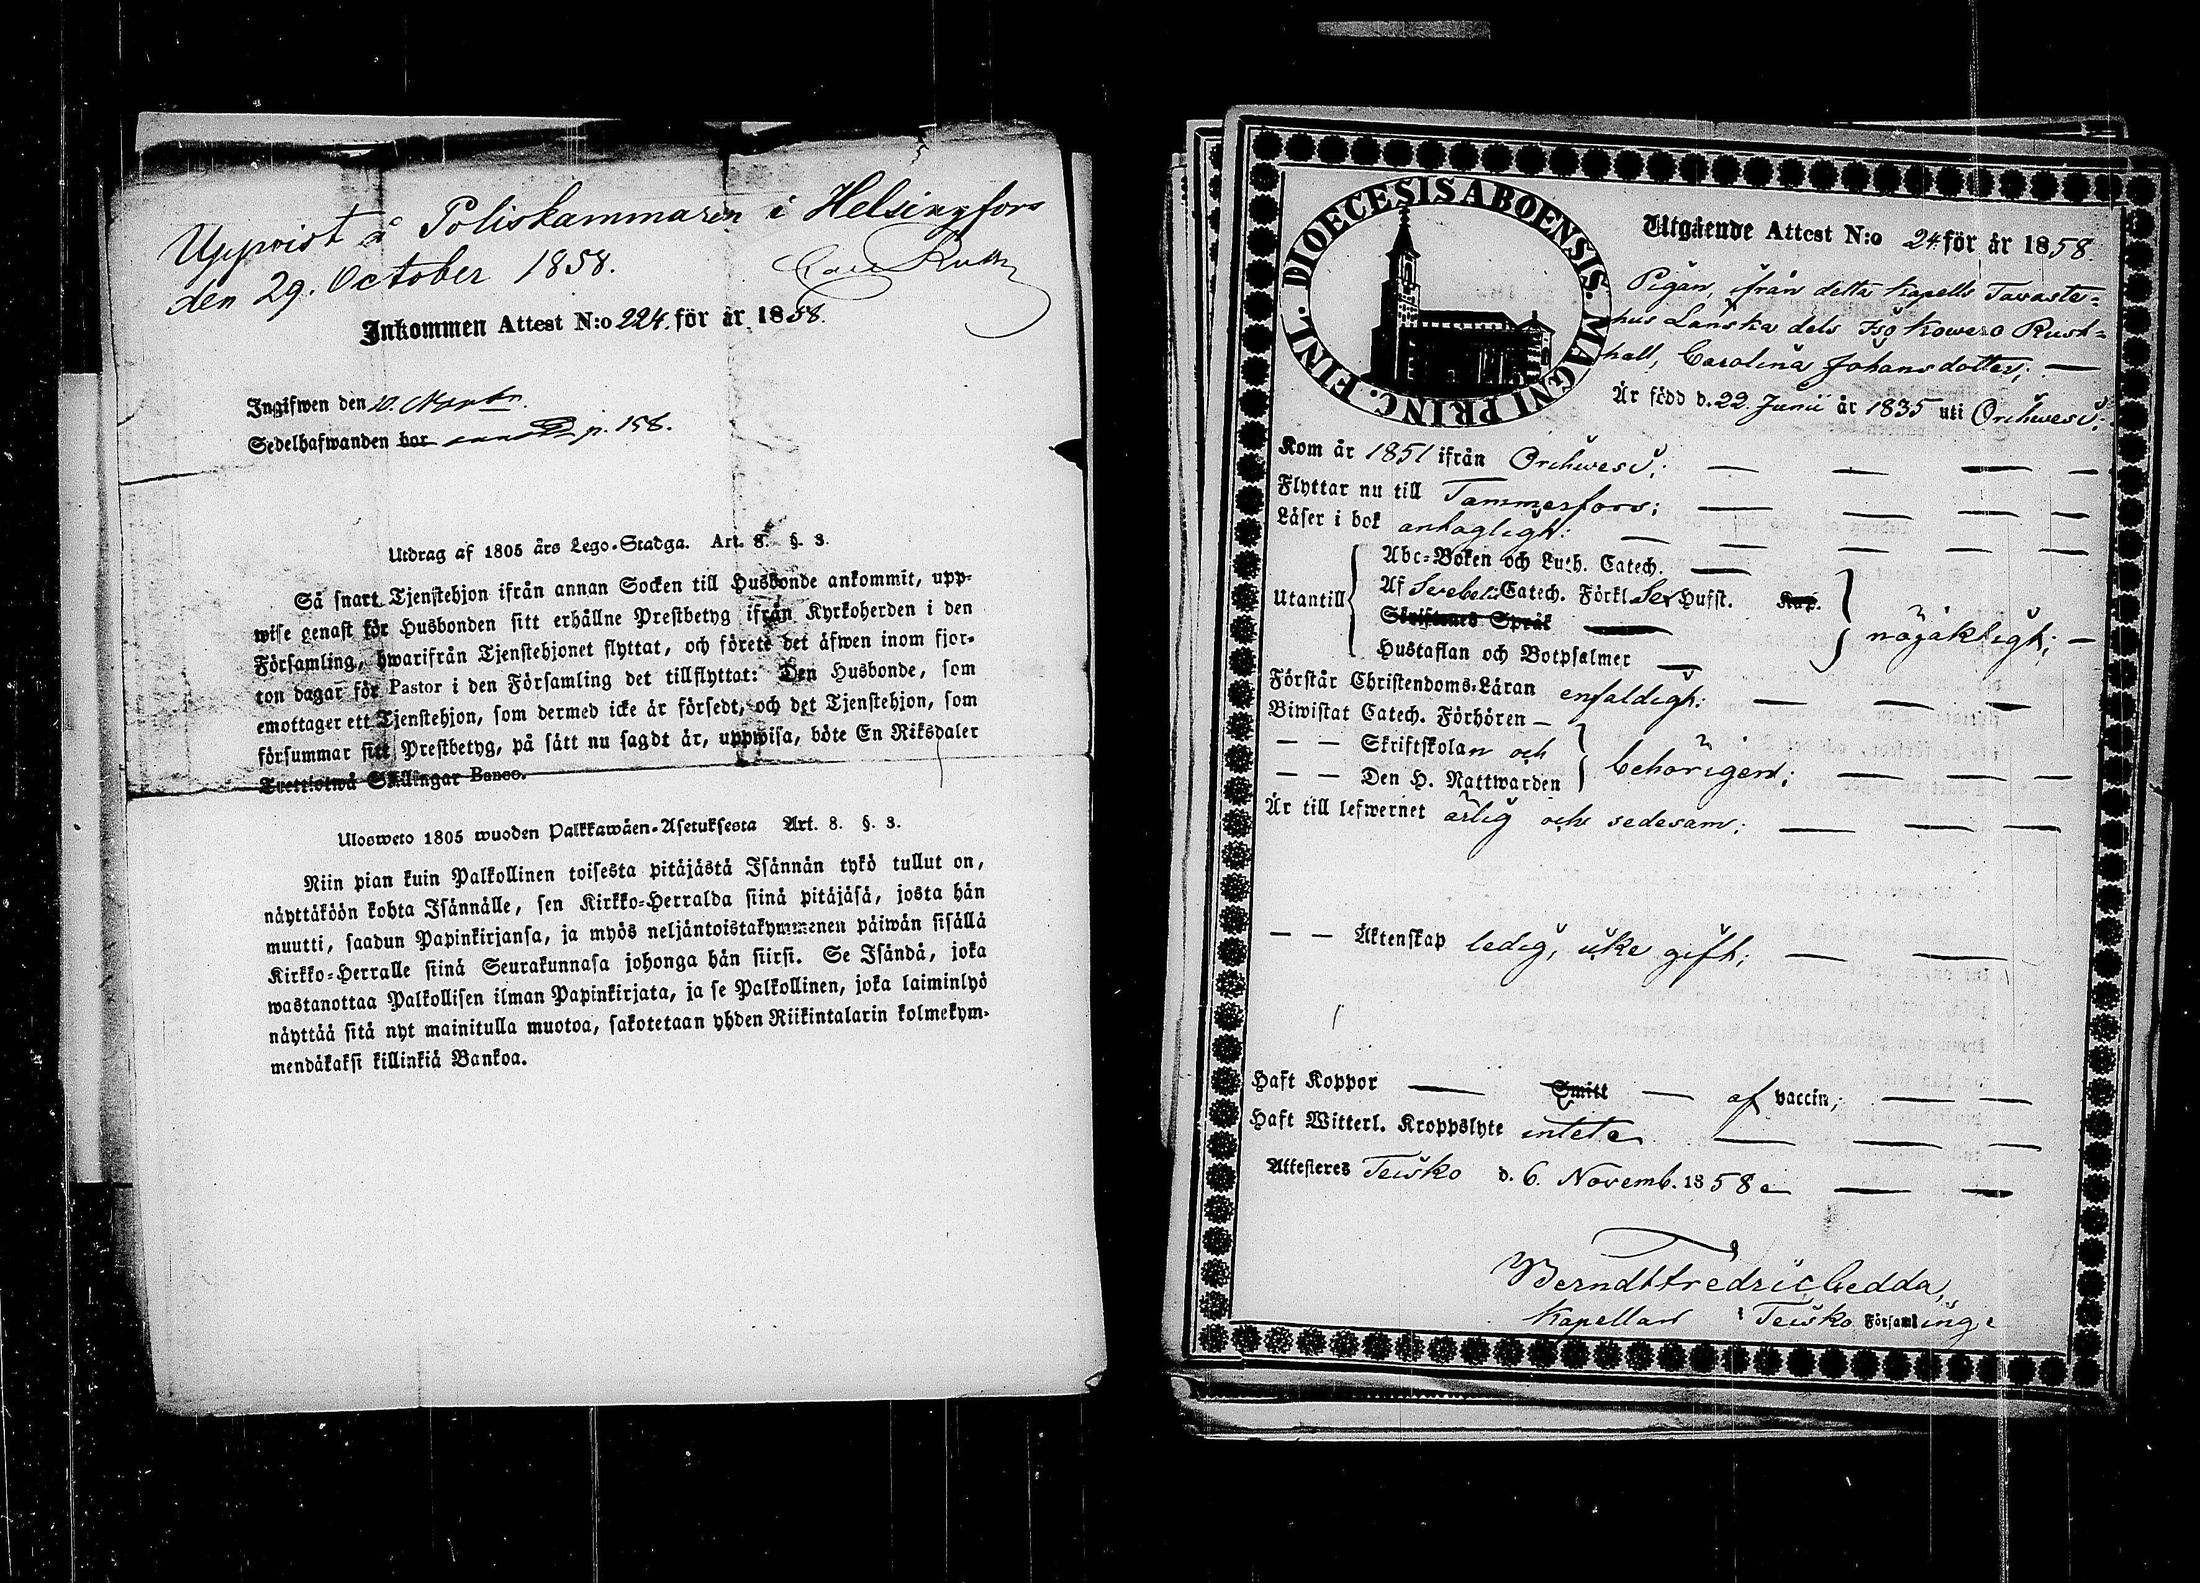 Uppvist å Poliskammaren i Helsingfors
den 29. October 1858.
Inkommen Attest N:o 224. för år 1858.
Ingifwen den 10. Novbr.
Sedelhafwanden bor p. 158.
Utdrag af 1805 års Lego-Stadga. Art. 8. §. 3.
Så snart Tjenstehjon ifrån annan Socken till Husbonde ankommit, upp-
wise genast för Husbonden sitt erhållne Prestbetyg ifrån Kyrkoherden i den
Församling, hwarifrån Tjenstehjonet flyttat, och förete det äfwen inom fjor-
ton dagar för Pastor i den Församling det tillflyttat: Den Husbonde, som
emottager ett Tjenstehjon, som dermed icke är försedt, och det Tjenstehjon, som
försummar sitt Prestbetyg, på sätt nu sagdt är, uppwisa, böte En Riksdaler
Trettiotwå Skillingar Banco.
Ulosweto 1805 wuoden Palkkawäen-Asetuksesta Art. 8. §. 3.
Niin pian kuin Palkollinen toisesta pitäjästä Isännän tykö tullut on,
näyttäköön kohta Isännälle, sen Kirkko-Herralda siinä pitäjäsä, josta hän
muutti, saadun Papinkirjansa, ja myös neljäntoistakymmenen päiwän sisällä
Kirkko-Herralle siinä Seurakunnasa johonga hän siirsi. Se Isändä, joka
wastanottaa Palkollisen ilman Papinkirjata, ja se Palkollinen, joka laiminlyö
näyttää sitä nyt mainitulla muotoa, sakotetaan yhden Riikintalarin kolmekym-
mendäkaksi killinkiä Bankoa.
DIOECESIS ABOENSIS. MAGNI PRINC. FINL.
Utgående Attest N:o 24. för år 1858.
Pigan, ifrån detta Kapells Tavaste-
hus Länska dels Iso Kowero Rust-
hall, Carolina Johansdotter; —
Är född d. 22 Junii år 1835 uti Orihwesi;
Kom år 1851 ifrån Orihwesi; — — — —
Flyttar nu till Tammerfors; — — — —
Läser i bok antagligt: — — — — —
Abc-Boken och Luth. Catech. —
Utantill Af Svebelii Catech. Förkl. Sex Hufst. Kap.
Skriftenes Språk — nöjaktligt; —
Hustaflan och Botpsalmer —
Förstår Christendoms-Läran enfaldigt: — — —
Biwistat Catech. Förhören —
— — Skriftskolan och behörigen; — — —
— — Den H. Nattwarden
Är till lefwernet ärlig och sedesam; — — —
— — Äktenskap ledig, icke gift; — —
Haft Koppor — Smitt — af vaccin; — —
Haft Witterl. Kroppslyte intet — — —
Attesteres Teisko d. 6. Novemb. 1858 — —
Berndt Fredric Gedda,
Kapellan i Teisko Församling